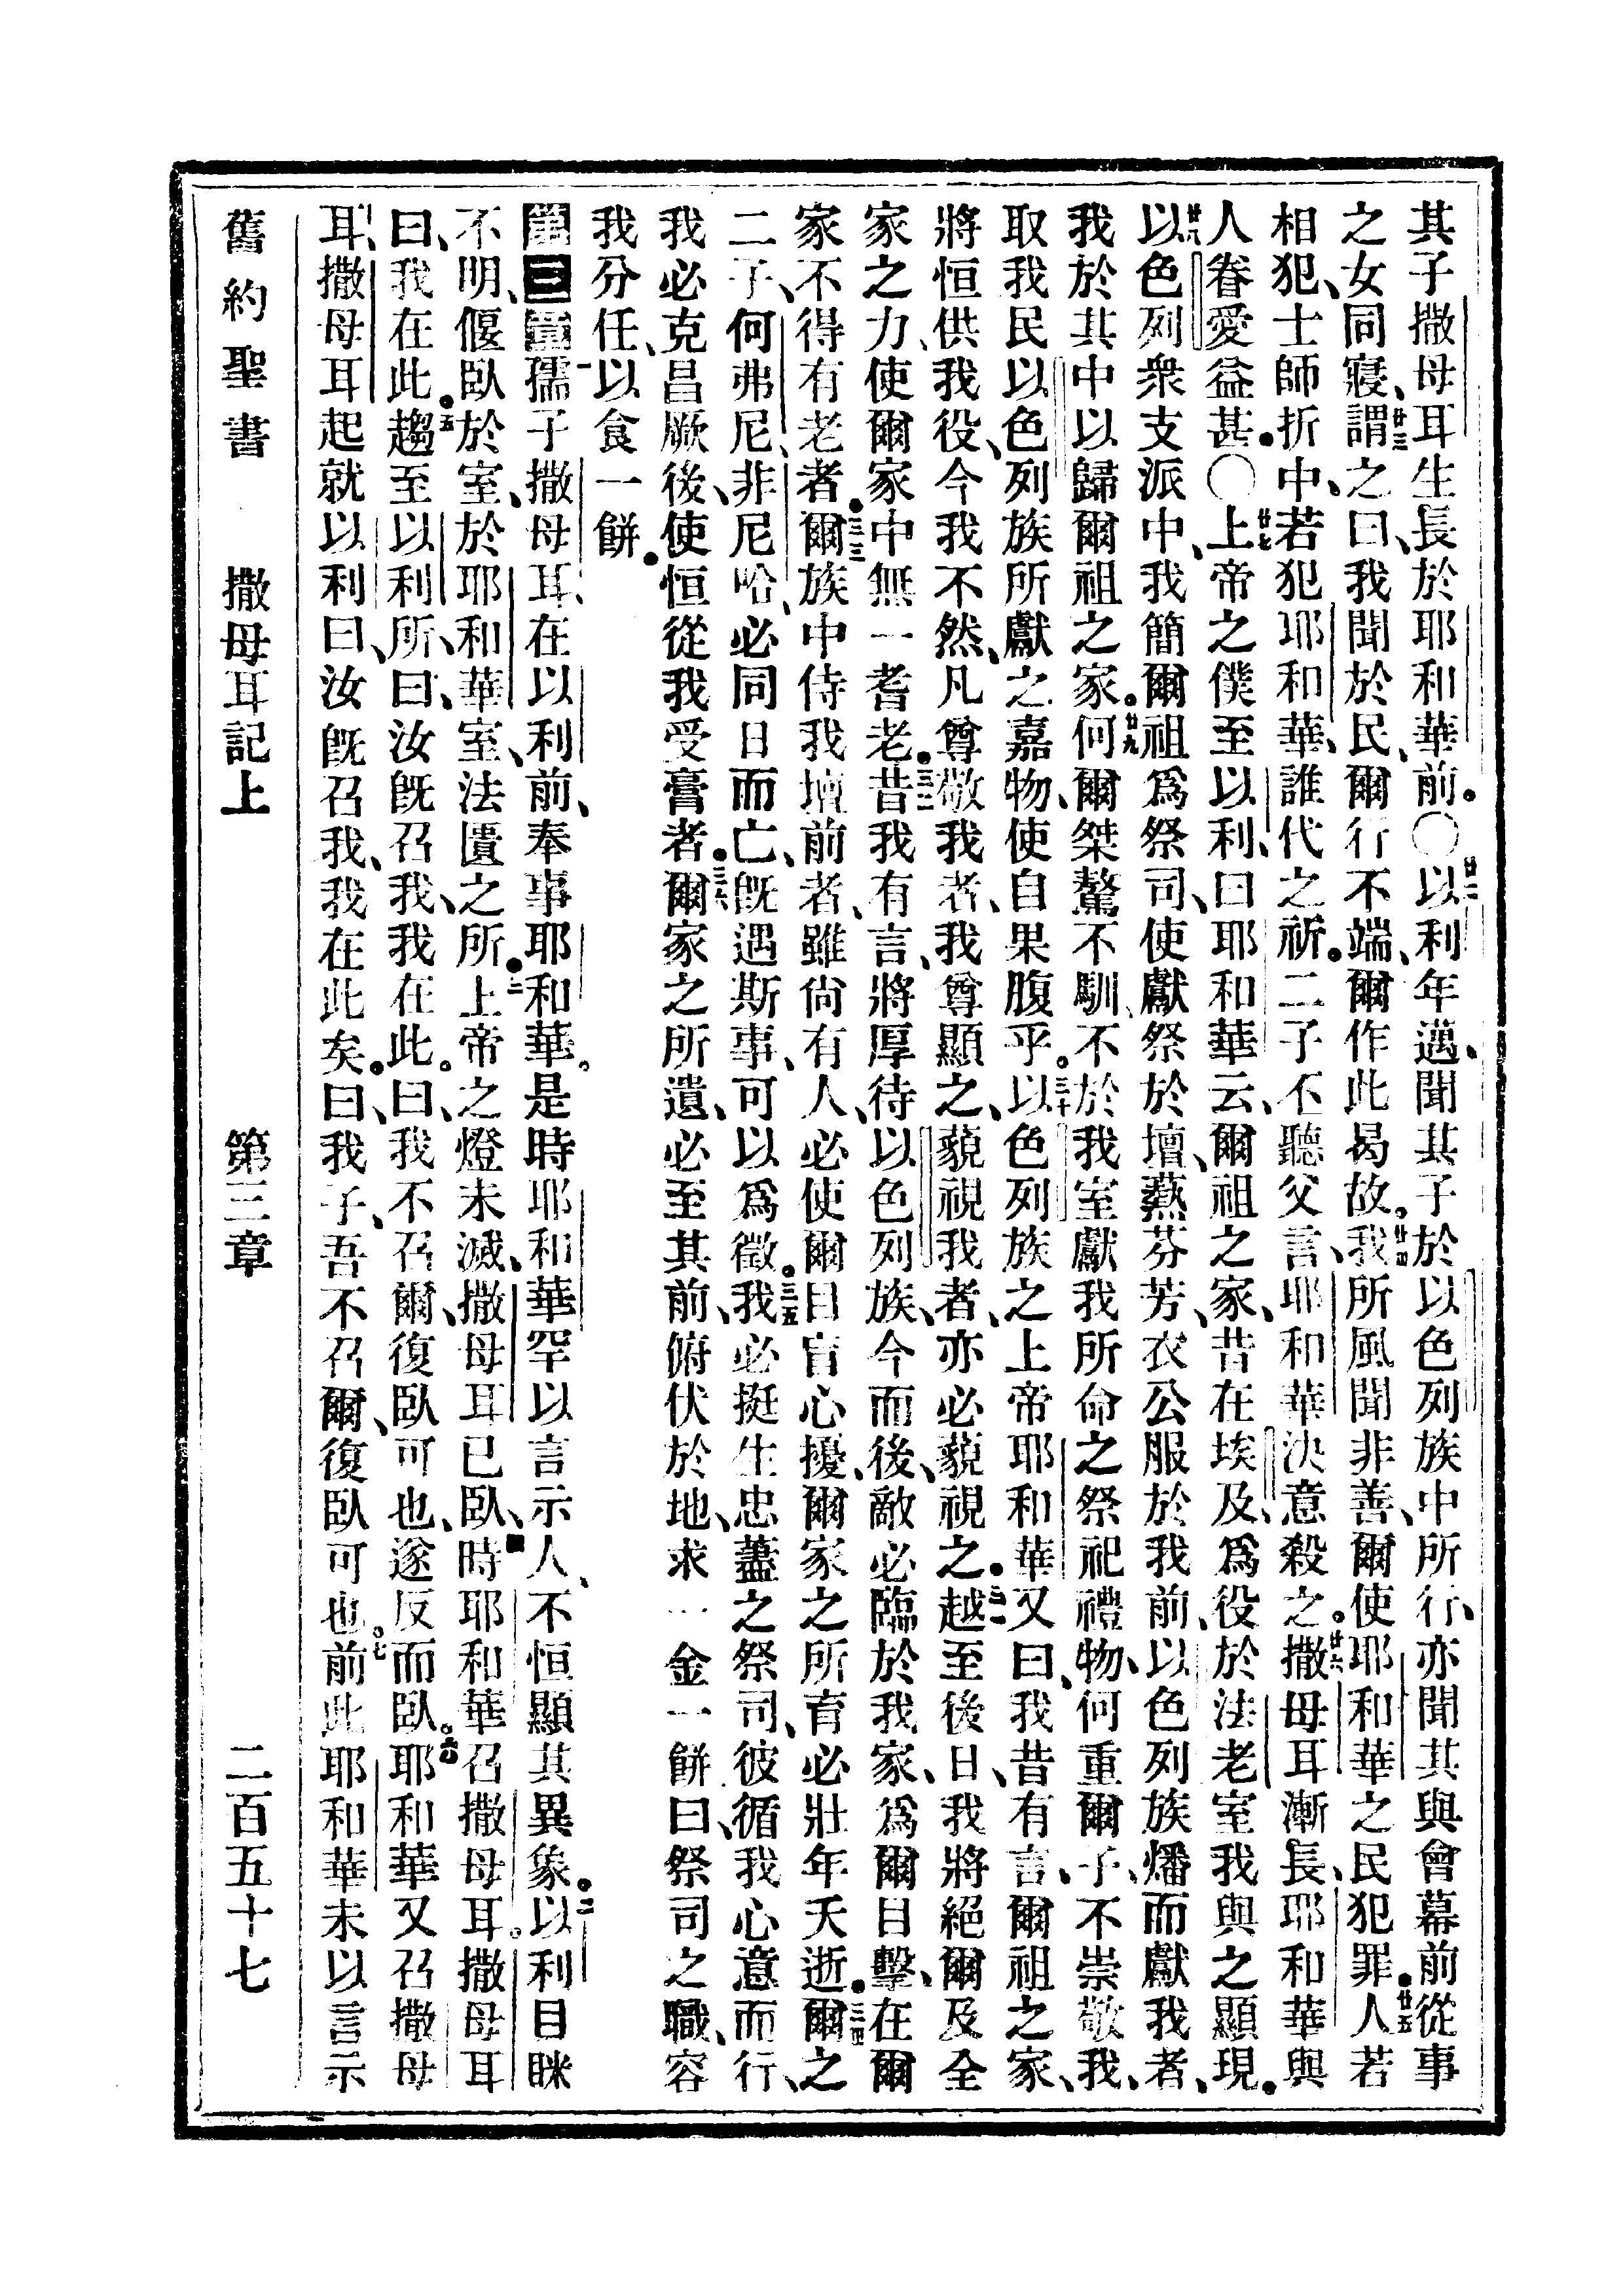 其子撒母耳生長於耶和華前。〇廿二以利年邁、聞其子於以色列族中所行、亦聞其與會幕前從事
之女同寢、廿三謂之曰、我聞於民、爾行不端、爾作此曷故。廿四我所風聞非善、爾使耶和華之民犯罪。廿五人若
相犯、士師折中、若犯耶和華、誰代之祈。二子不聽父言、耶和華決意殺之。廿六撒母耳漸長、耶和華與
人眷愛益甚。〇廿七上帝之僕至以利、曰耶和華云、爾祖之家、昔在埃及、爲役於法老室我與之顯現。
廿八以色列衆支派中、我簡爾祖爲祭司、使獻祭於壇、爇芬芳、衣公服於我前、以色列族燔而獻我者、
我於其中以歸爾祖之家。廿九何爾桀驁不馴、不於我室獻我所命之祭祀禮物、何重爾子、不崇敬我、
取我民以色列族所獻之嘉物、使自果腹乎。三十以色列族之上帝耶和華又曰、我昔有言、爾祖之家、
將恒供我役、今我不然、凡尊敬我者、我尊顯之、藐視我者、亦必藐視之。三一越至後日、我將絕爾及全
家之力、使爾家中無一耆老。三二昔我有言、將厚待以色列族、今而後、敵必臨於我家、爲爾目擊、在爾
家不得有老者。三三爾族中侍我壇前者、雖尙有人、必使爾目盲心擾、爾家之所育必壯年夭逝。三四爾之
二子、何弗尼、非尼哈、必同日而亡、旣遇斯事、可以爲徵。三五我必挺生忠藎之祭司、彼循我心意而行、
我必克昌厥後、使恒從我受膏者。三六爾家之所遺、必至其前、俯伏於地、求一金一餅曰、祭司之職、容
我分任、以食一餅。
第三章一孺子撒母耳、在以利前、奉事耶和華。是時耶和華罕以言示人、不恒顯其異象。二以利目眯
不明、偃臥於室、於耶和華室、法匱之所。三上帝之燈未滅、撒母耳已臥、四時耶和華召撒母耳。撒母耳
曰、我在此。五趨至以利所、曰、汝旣召我、我在此。曰、我不召爾、復臥可也、遂反而臥。六耶和華又召撒母
耳、撒母耳起就以利曰、汝旣召我、我在此矣。曰、我子、吾不召爾、復臥可也。七前此耶和華未以言示
舊約聖書 撒母耳記上 第三章 二百五十七